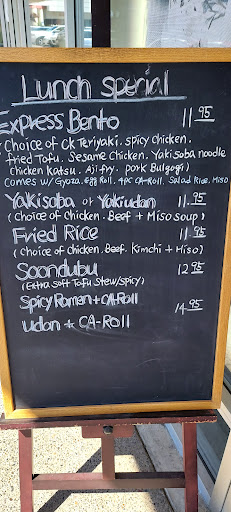 Lunch Special
Express Bento 11.95
(Choice of Ck Teriyaki. spicy chicken.
fried Tofu. Sesame Chicken. Yakisoba noodle
chicken katsu. Aji-fry. pork Bulgogi)
Comes w/ Gyoza. egg Roll. 4pc CA-Roll. Salad Rice. Miso
Yakisoba or Yakiudan 11.95
(Choice of Chicken. Beef + Miso soup)
Fried Rice 11.95
(Choice of chicken. Beef. Kimchi + Miso)
Soondubu 12.95
(Extra Soft Tofu Stew/spicy)
Spicy Ramen + CA-Roll
14.95
udan + CA-Roll